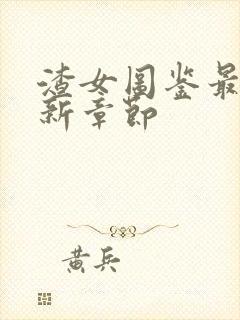 渣女图鉴最
新章节
黄兵